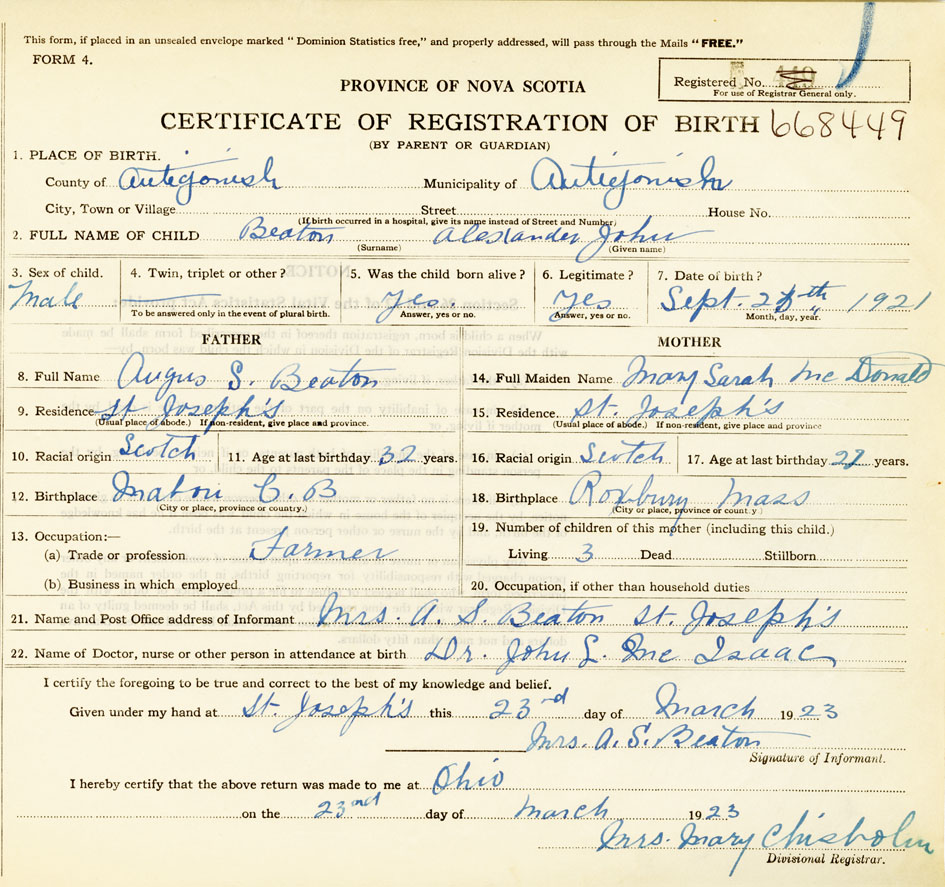 This form, if placed in an unsealed envelope marked "Dominion Statistics free," and properly addressed, will pass through the Mails "FREE."
FORM 4.
Registered No. 449
For use of Registrar General only.
PROVINCE OF NOVA SCOTIA
CERTIFICATE OF REGISTRATION OF BIRTH 668449
(BY PARENT OR GUARDIAN)
1. PLACE OF BIRTH.
County of Antigonish Municipality of Antigonish
City, Town or Village Street House No.
(If birth occurred in a hospital, give its name instead of Street and Number)
2. FULL NAME OF CHILD Beaton Alexander John
(Surname) (Given name)
3. Sex of child. 4. Twin, triplet or other? 5. Was the child born alive? 6. Legitimate? 7. Date of birth?
Male Yes Yes Sept. th 1921
To be answered only in the event of plural birth. Answer, yes or no. Answer, yes or no. Month, day, year.
FATHER MOTHER
8. Full Name Angus S. Beaton 14. Full Maiden Name Mary Sarah Mc Donald
9. Residence St Joseph's 15. Residence St. Joseph's
(Usual place of abode.) If non-resident, give place and province. (Usual place of abode.) If non-resident, give place and province
10. Racial origin Scotch 11. Age at last birthday 32 years. 16. Racial origin Scotch 17. Age at last birthday years.
12. Birthplace Mabou C. B 18. Birthplace Roxbury Mass
(City or place, province or country.) (City or place, province or country)
13. Occupation:— 19. Number of children of this mother (including this child.)
(a) Trade or profession Farmer Living 3 Dead Stillborn
(b) Business in which employed 20. Occupation, if other than household duties
21. Name and Post Office address of Informant Mrs. A. S. Beaton St. Joseph's
22. Name of Doctor, nurse or other person in attendance at birth Dr. John L. Mc Isaac
I certify the foregoing to be true and correct to the best of my knowledge and belief.
Given under my hand at St. Joseph's this 23rd day of March 1923
Mrs. A. S. Beaton
Signature of Informant.
I hereby certify that the above return was made to me at Ohio
on the 23rd day of March 1923
Mrs. Mary Chisholm
Divisional Registrar.